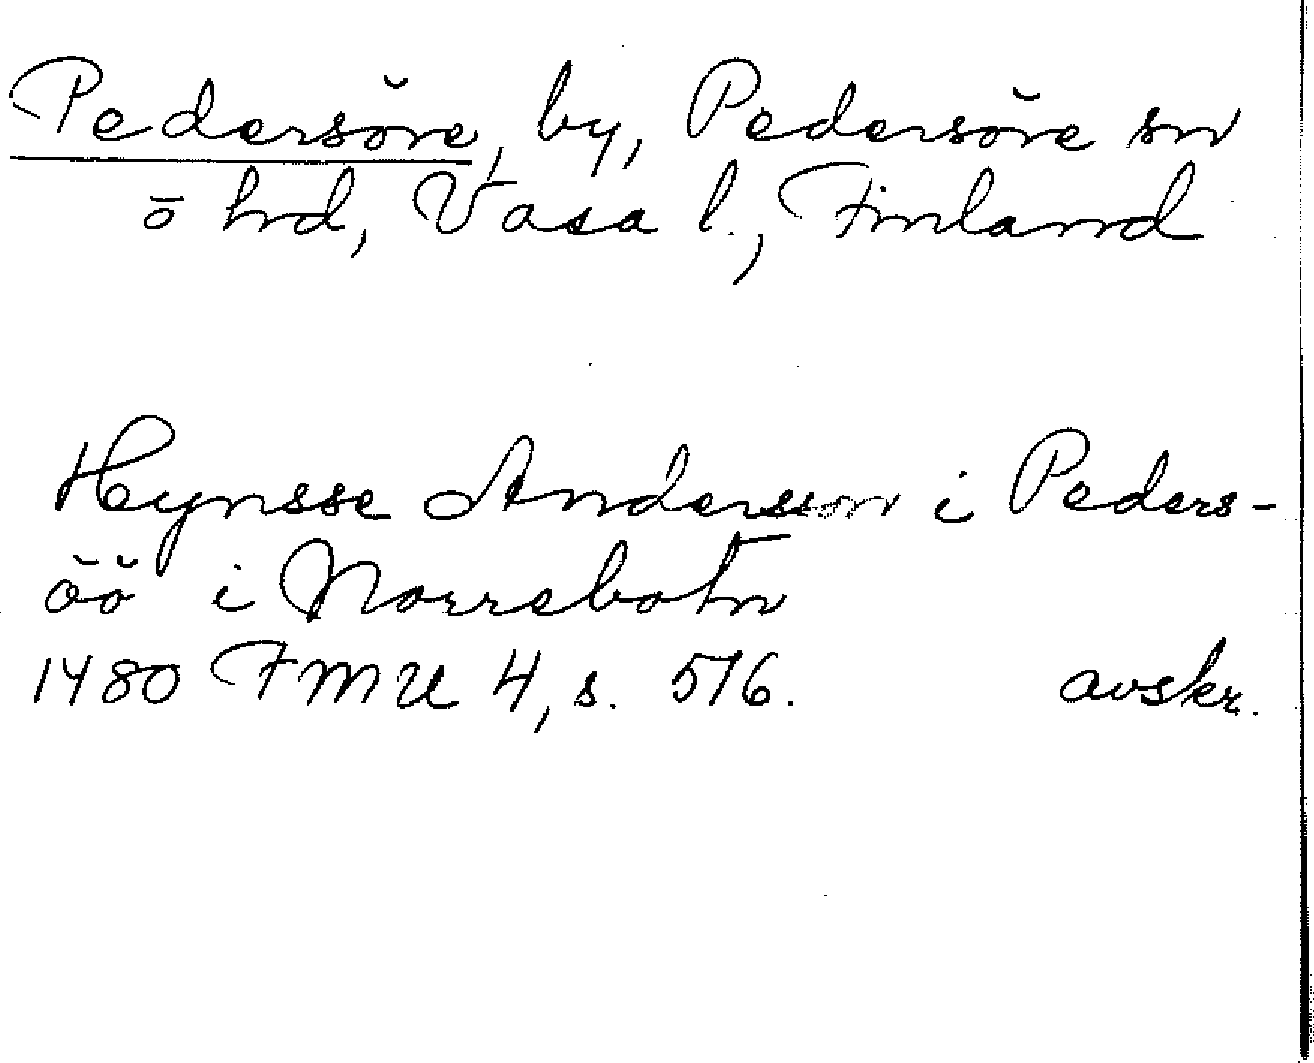 Pedersöre, by, Pedersöre sn
o hd, Vasa l., Finland
Heynsse Anderson i Peders-
öö i Norrebotn
1480 FMU 4, s. 516.
avskr.